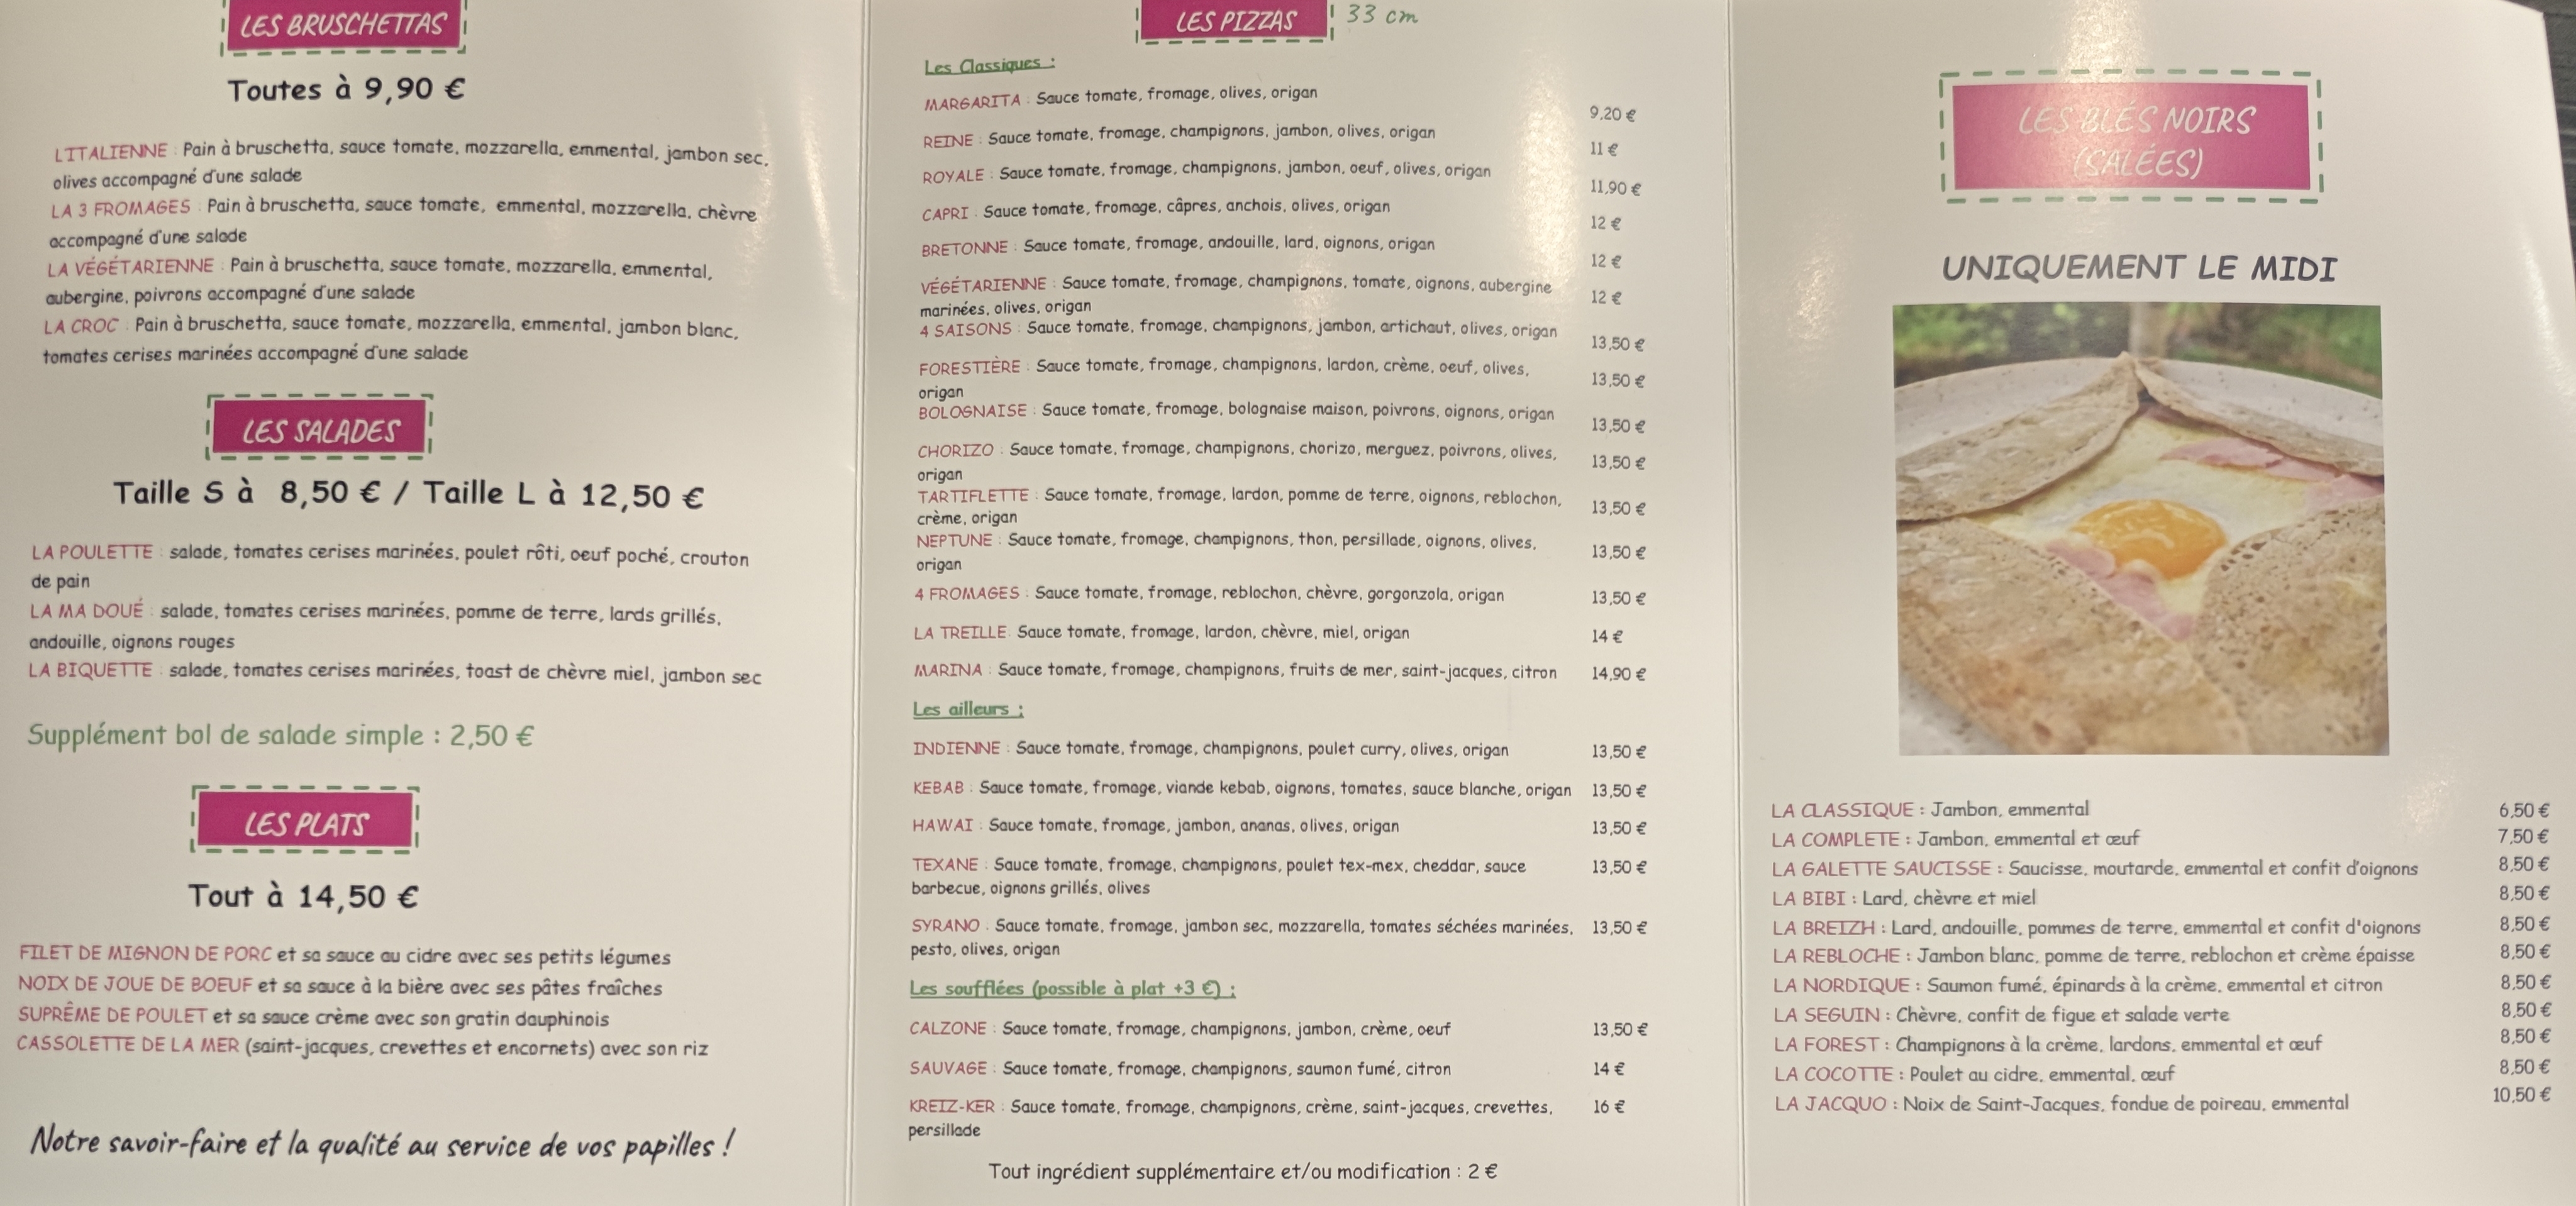 LES BRUSCHETTAS
Toutes à 9,90 €
L'ITALIENNE : Pain à bruschetta, sauce tomate, mozzarella, emmental, jambon sec,
olives accompagné d'une salade
LA 3 FROMAGES : Pain à bruschetta, sauce tomate, emmental, mozzarella, chèvre
accompagné d'une salade
LA VÉGÉTARIENNE : Pain à bruschetta, sauce tomate, mozzarella, emmental,
aubergine, poivrons accompagné d'une salade
LA CROC : Pain à bruschetta, sauce tomate, mozzarella, emmental, jambon blanc,
tomates cerises marinées accompagné d'une salade
LES SALADES
Taille S à 8,50 € / Taille L à 12,50 €
LA POULETTE : salade, tomates cerises marinées, poulet rôti, oeuf poché, crouton
de pain
LA MA DOUÉ : salade, tomates cerises marinées, pomme de terre, lards grillés,
andouille, oignons rouges
LA BIQUETTE : salade, tomates cerises marinées, toast de chèvre miel, jambon sec
Supplément bol de salade simple : 2,50 €
LES PLATS
Tout à 14,50 €
FILET DE MIGNON DE PORC et sa sauce au cidre avec ses petits légumes
NOIX DE JOUE DE BOEUF et sa sauce à la bière avec ses pâtes fraîches
SUPRÊME DE POULET et sa sauce crème avec son gratin dauphinois
CASSOLETTE DE LA MER (saint-jacques, crevettes et encornets) avec son riz
Notre savoir-faire et la qualité au service de vos papilles !
LES PIZZAS 33 cm
Les Classiques :
MARGARITA : Sauce tomate, fromage, olives, origan 9,20 €
REINE : Sauce tomate, fromage, champignons, jambon, olives, origan 11 €
ROYALE : Sauce tomate, fromage, champignons, jambon, oeuf, olives, origan 11,90 €
CAPRI : Sauce tomate, fromage, câpres, anchois, olives, origan 12 €
BRETONNE : Sauce tomate, fromage, andouille, lard, oignons, origan 12 €
VÉGÉTARIENNE : Sauce tomate, fromage, champignons, tomate, oignons, aubergine 12 €
marinées, olives, origan
4 SAISONS : Sauce tomate, fromage, champignons, jambon, artichaut, olives, origan 13,50 €
FORESTIÈRE : Sauce tomate, fromage, champignons, lardon, crème, oeuf, olives, 13,50 €
origan
BOLOGNAISE : Sauce tomate, fromage, bolognaise maison, poivrons, oignons, origan 13,50 €
CHORIZO : Sauce tomate, fromage, champignons, chorizo, merguez, poivrons, olives, 13,50 €
origan
TARTIFLETTE : Sauce tomate, fromage, lardon, pomme de terre, oignons, reblochon, 13,50 €
crème, origan
NEPTUNE : Sauce tomate, fromage, champignons, thon, persillade, oignons, olives, 13,50 €
origan
4 FROMAGES : Sauce tomate, fromage, reblochon, chèvre, gorgonzola, origan 13,50 €
LA TREILLE Sauce tomate, fromage, lardon, chèvre, miel, origan 14 €
MARINA : Sauce tomate, fromage, champignons, fruits de mer, saint-jacques, citron 14,90 €
Les ailleurs :
INDIENNE : Sauce tomate, fromage, champignons, poulet curry, olives, origan 13,50 €
KEBAB : Sauce tomate, fromage, viande kebab, oignons, tomates, sauce blanche, origan 13,50 €
HAWAI : Sauce tomate, fromage, jambon, ananas, olives, origan 13,50 €
TEXANE : Sauce tomate, fromage, champignons, poulet tex-mex, cheddar, sauce 13,50 €
barbecue, oignons grillés, olives
SYRANO : Sauce tomate, fromage, jambon sec, mozzarella, tomates séchées marinées, 13,50 €
pesto, olives, origan
Les soufflées (possible à plat +3 €) :
CALZONE : Sauce tomate, fromage, champignons, jambon, crème, oeuf 13,50 €
SAUVAGE : Sauce tomate, fromage, champignons, saumon fumé, citron 14 €
KREIZ-KER : Sauce tomate, fromage, champignons, crème, saint-jacques, crevettes, 16 €
persillade
Tout ingrédient supplémentaire et/ou modification : 2 €
LES BLÉS NOIRS
(SALÉES)
UNIQUEMENT LE MIDI
LA CLASSIQUE : Jambon, emmental 6,50 €
LA COMPLETE : Jambon, emmental et œuf 7,50 €
LA GALETTE SAUCISSE : Saucisse, moutarde, emmental et confit d'oignons 8,50 €
LA BIBI : Lard, chèvre et miel 8,50 €
LA BREIZH : Lard, andouille, pommes de terre, emmental et confit d'oignons 8,50 €
LA REBLOCHE : Jambon blanc, pomme de terre, reblochon et crème épaisse 8,50 €
LA NORDIQUE : Saumon fumé, épinards à la crème, emmental et citron 8,50 €
LA SEGUIN : Chèvre, confit de figue et salade verte 8,50 €
LA FOREST : Champignons à la crème, lardons, emmental et œuf 8,50 €
LA COCOTTE : Poulet au cidre, emmental, œuf 8,50 €
LA JACQUO : Noix de Saint-Jacques, fondue de poireau, emmental 10,50 €